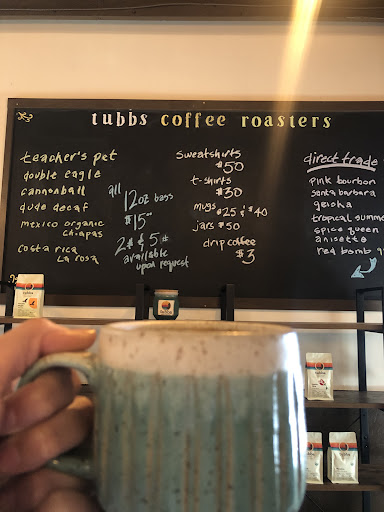 tubbs coffee roasters
teacher's pet
double eagle
cannonball
dude decaf
mexico organic
chiapas
costa rica
La rosa
all
12oz bags
$15
2# & 5#
available
upon request
sweatshirts
$50
t-shirts
$30
mugs $25 & $40
jars $50
drip coffee
$3
direct trade
pink bourbon
santa barbara
geisha
tropical summer
spice queen
anisette
red bomb
tubbs